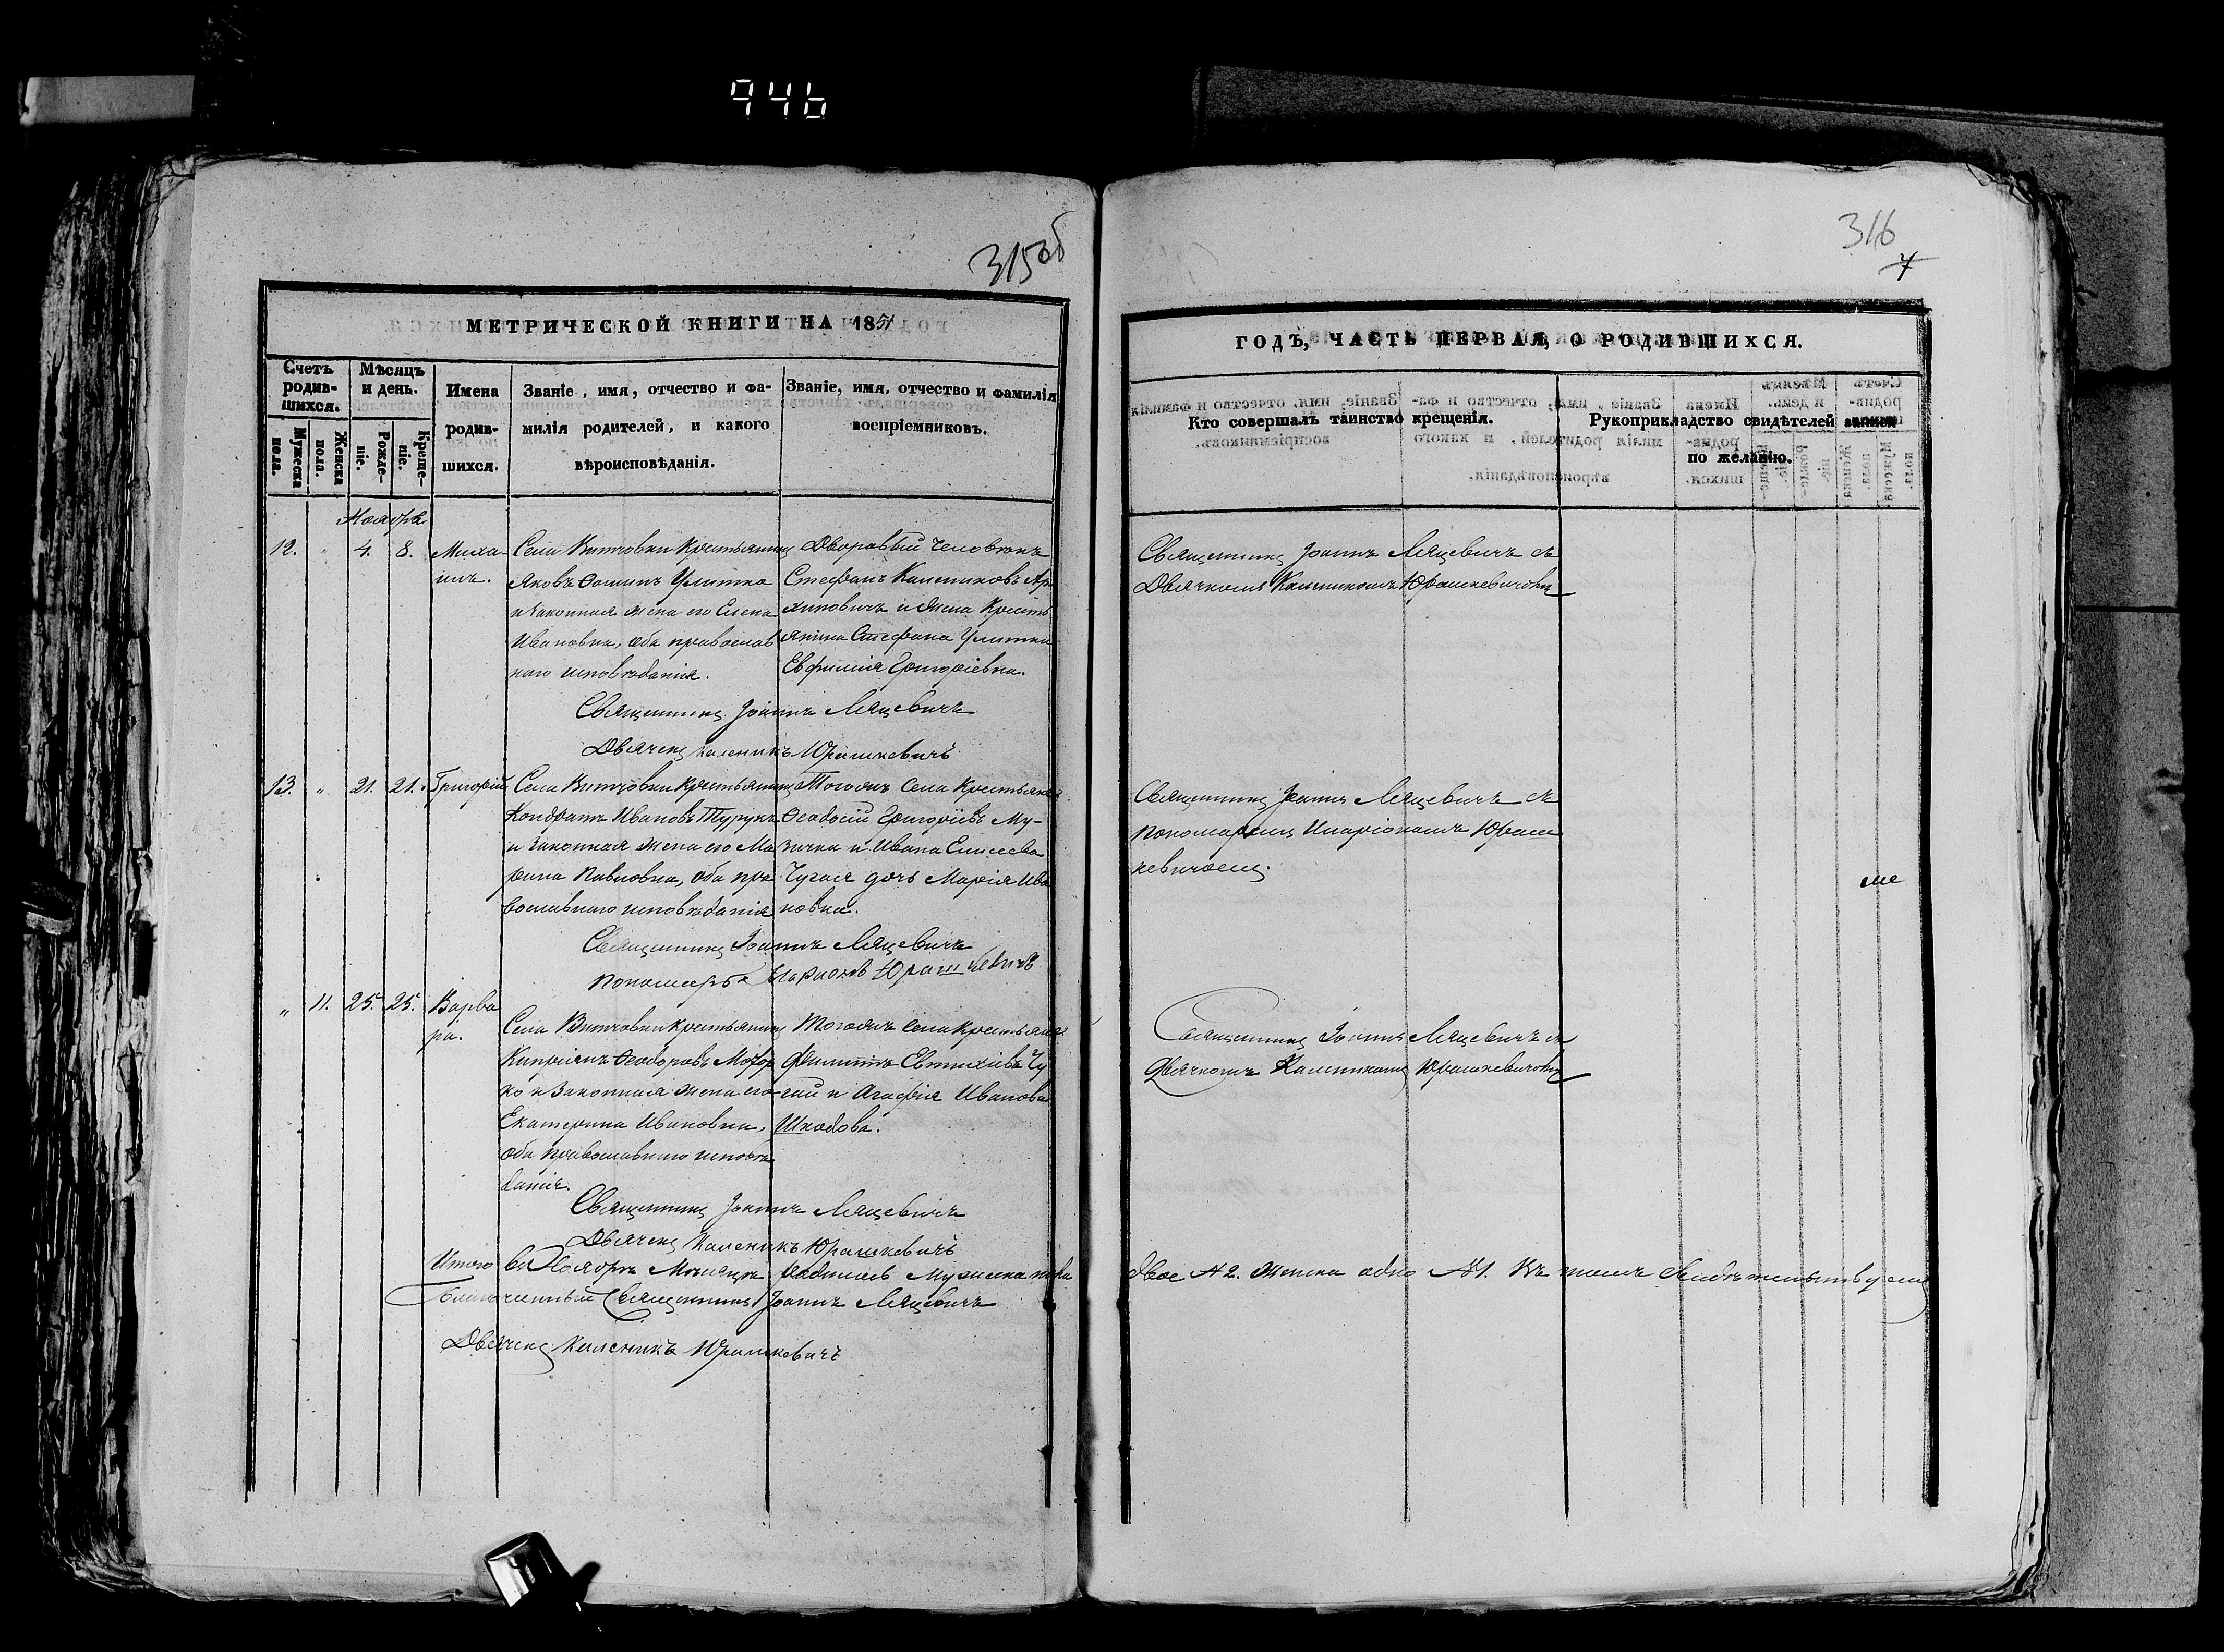 946
315об
МЕТРИЧЕСКОЙ КНИГИ НА 1851
Счетъ родив-шихся.
Мѣсяцъ и день.
Имена родив-шихся.
Званіе, имя, отчество и фа-милія родителей, и какого вѣроисповѣданія.
Званіе, имя, отчество и фамилія воспріемниковъ.
Мужеска пола.
Женска пола.
Рожде-ніе.
Креще-ніе.
Ноябрь
12. " 4. 8. Миха
илъ.
Села Витчовки Крестьянинъ
Яковъ Фоминъ Улитка
и законная жена его Елена
Ивановна, оба православ
наго исповѣданія.
Дворовый человѣкъ
Стефанъ Калениковъ Ар
хиповичъ и жена Кресть
янина Стефана Улитки
Евфимія Григоріевна.
Священникъ Іоаннъ Ляцевичъ
Дьячекъ Каленикъ Юрашкевичъ
13. " 21. 21. Григорій
Села Витчовки Крестьянинъ
Кондратъ Ивановъ Турукъ
и законная жена его Ма
рина Павловна, оба пра
вославнаго исповѣданія
Тогожъ села Крестьяне
Феодосій Григоріевъ Му-
зичка и Ивана Елисеева
Чугая дочь Марія Ива
новна.
Священникъ Іоаннъ Ляцевичъ
Пономарь Иларіонъ Юрашкевичъ
" 11. 25. 25. Варва
ра.
Села Витчовки крестьянинъ
Кипріянъ Феодоровъ
ко и законная жена его
Екатерина Ивановна,
оба православнаго исповѣ
данія.
Тогожъ села крестьяне
Филиппъ Евтихіевъ Чу
гай и Агафія Иванова
Шкодова.
Священникъ Іоаннъ Ляцевичъ
Дьячекъ Каленикъ Юрашкевичъ
Итого въ Ноябрѣ Мѣсяцѣ родилось Мужеска пола
Благочинный Священникъ Іоаннъ Ляцевичъ
Дьячекъ Каленикъ Юрашкевичъ
316
7
ГОДЪ, ЧАСТЬ ПЕРВАЯ, О РОДИВШИХСЯ.
Кто совершалъ таинство крещенія.
Рукоприкладство свидѣтелей записи по желанію.
Священникъ Іоаннъ Ляцевичъ съ
Дьячкомъ Каленикомъ Юрашкевичомъ
Священникъ Іоаннъ Ляцевичъ съ
пономаремъ Иларіономъ Юраш
кевичомъ.
Священникъ Іоаннъ Ляцевичъ съ
Дьячкомъ Каленикомъ Юрашкевичомъ
двое №2. Женска одно №1. Въ томъ свидѣтельствуемъ